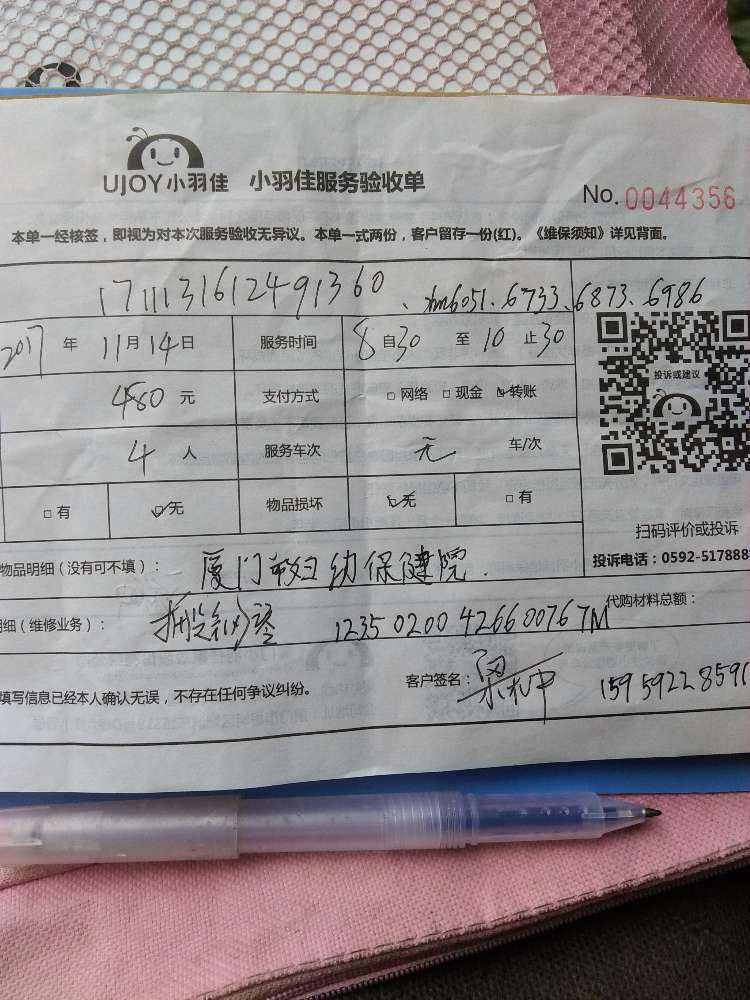 UJOY小羽佳 小羽佳服务验收单
No. 0044356
本单一经核签，即视为对本次服务验收无异议。本单一式两份，客户留存一份(红)。《维保须知》详见背面。
1711131612491360、 6051.6733.6873.6986
2017 年 11月14日 服务时间 8自30 至 10止30
投诉或建议
480 元 支付方式 □ 网络 □ 现金 ☑转账
4 人 服务车次 无 车/次
□ 有 ☑无 物品损坏 ☑无 □ 有
扫码评价或投诉
物品明细（没有可不填）： 厦门市妇幼保健院.
投诉电话：0592-517888
明细（维修业务）： 12350200426600767M 代购材料总额：
填写信息已经本人确认无误，不存在任何争议纠纷。 客户签名： 15959228591